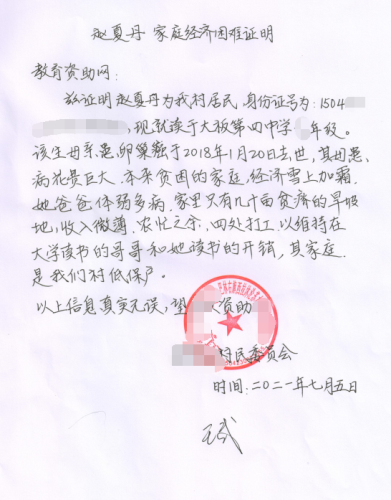 赵夏丹 家庭经济困难证明
教育资助网:
兹证明赵夏丹为我村居民,身份证号为:1504
,现就读于大板第四中学 年级。
该生母亲患卵巢癌于2018年1月20日去世,其母患
病花费巨大,本来贫困的家庭,经济雪上加霜。
她爸爸体弱多病,家里只有几十亩贫瘠的旱坡
地,收入微薄,农忙之余,四处打工以维持在
大学读书的哥哥和她读书的开销,其家庭
是我们村低保户。
以上信息真实无误,望 资助
村民委员会
时间:二〇二一年七月五日